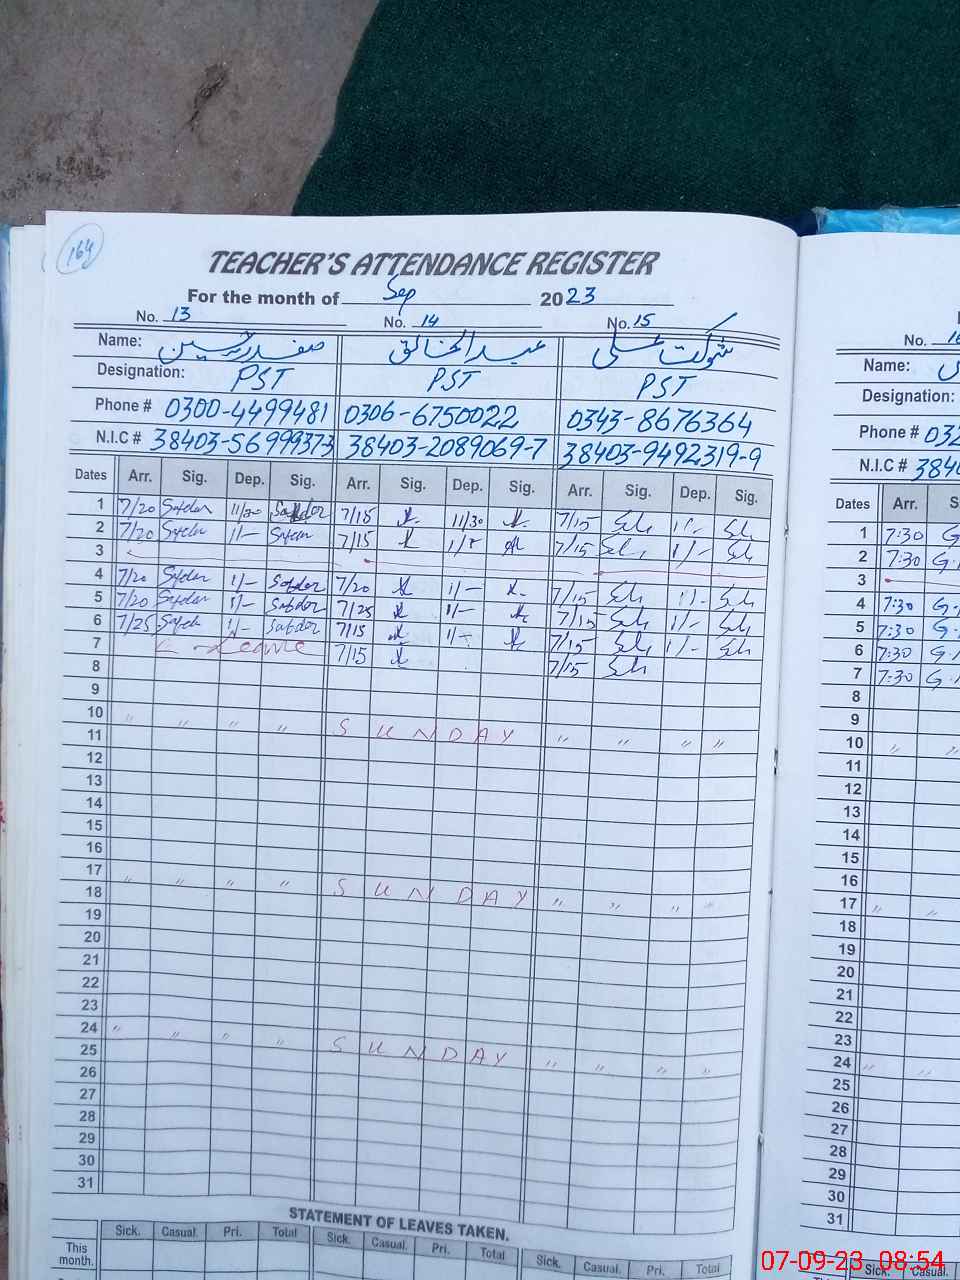 164
TEACHER'S ATTENDANCE REGISTER
For the month of Sep 2023
No. 13 No. 14 No. 15
Name: صفدر حسین عبد الخالق شوکت علی
Designation: PST PST PST
Phone # 0300-4499481 0306-6750022 0343-8676364
N.I.C # 38403-56999373 38403-2089069-7 38403-9492319-9
Dates Arr. Sig. Dep. Sig. Arr. Sig. Dep. Sig. Arr. Sig. Dep. Sig.
1 7/20 Safder 11/30 Safder 7/15 11/30 7/15 11/-
2 7/20 Safder 11/- Safder 7/15 7/15 11/-
3
4 7/20 Safder 11/- Safder 7/20 11/- 7/15 11/-
5 7/20 Safder 11/- Safder 7/25 11/- 7/15 11/-
6 7/25 Safder 11/- Safder 7/15 11/- 7/15 11/-
7 Leave 7/15 7/15
8
9
10 " " " " SUNDAY " " " "
11
12
13
14
15
16
17 " " " " SUNDAY " " " "
18
19
20
21
22
23
24 " " " " SUNDAY " " " "
25
26
27
28
29
30
31
STATEMENT OF LEAVES TAKEN.
Sick. Casual. Pri. Total Sick. Casual. Pri. Total Sick. Casual. Pri. Total
This month.
No. 16
Name:
Designation:
Phone #
N.I.C #
Dates Arr.
1 7:30
2 7:30
3
4 7:30
5 7:30
6 7:30
7 7:30
8
9
10 " "
11
12
13
14
15
16
17 " "
18
19
20
21
22
23
24 " "
25
26
27
28
29
30
31
Sick. Casual.
07-09-23 08:54